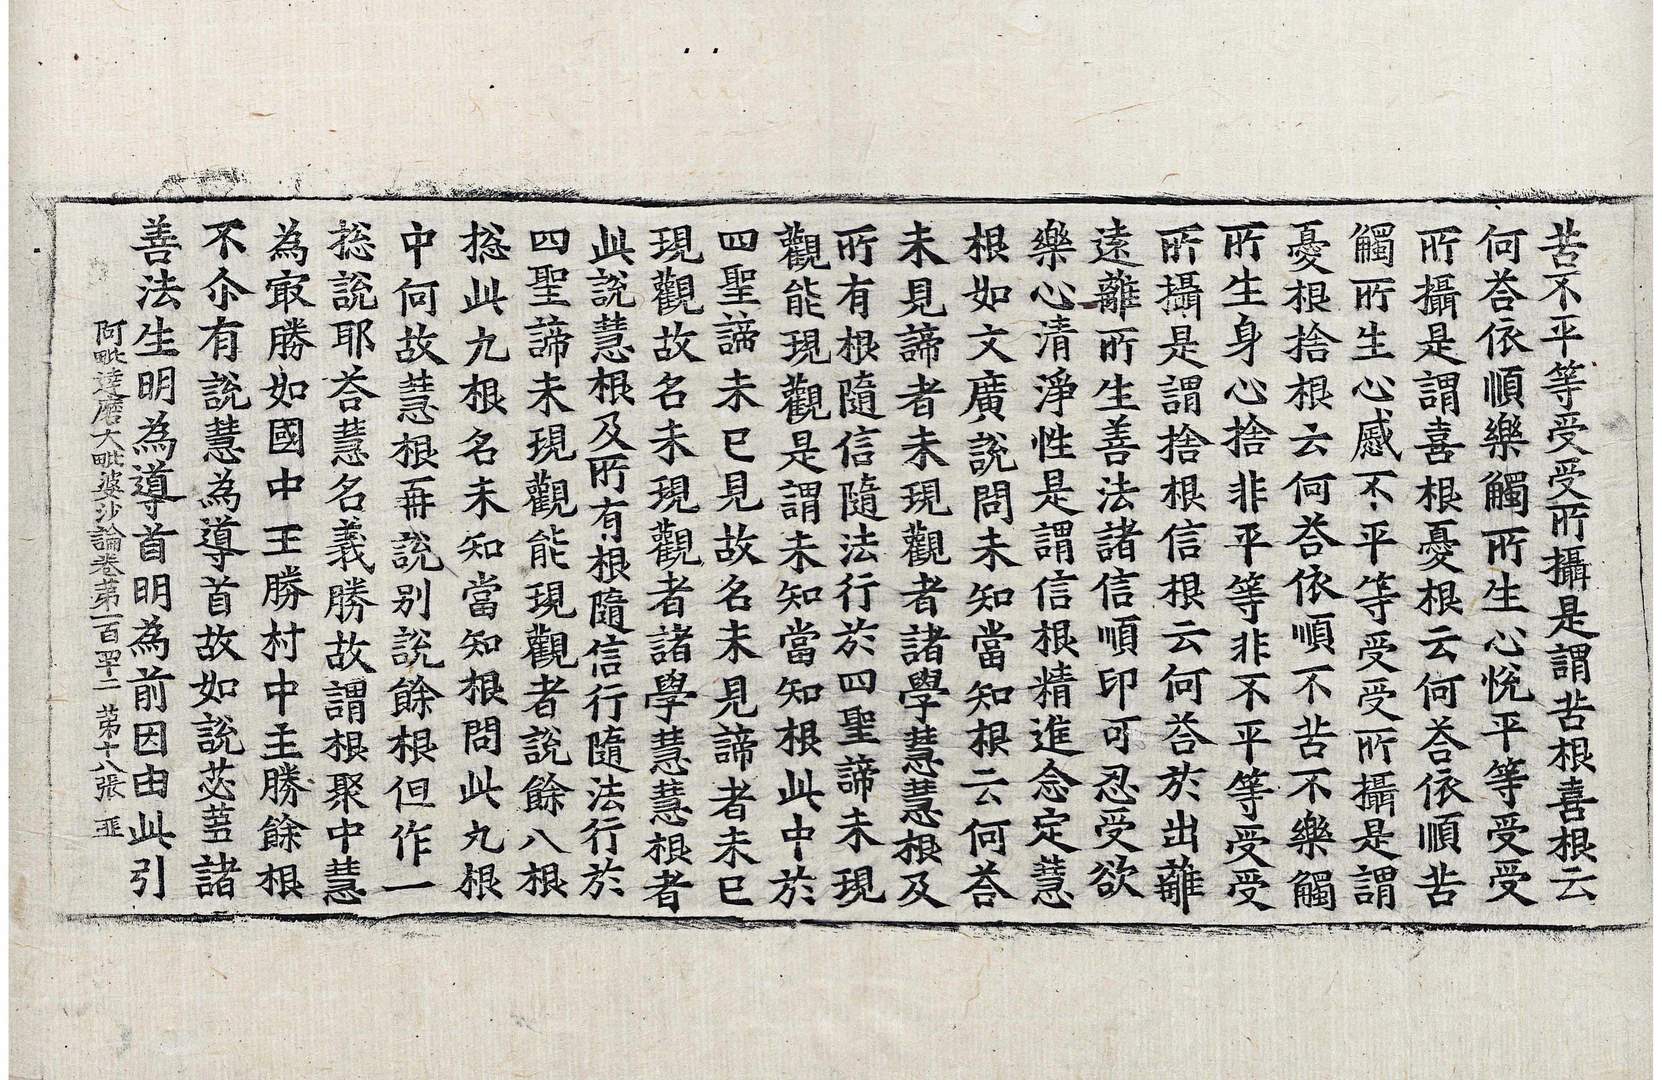 苦不平等受受所攝是謂苦根喜根云
何荅依順樂觸所生心恱平等受受
所攝是謂喜根憂根云何荅依順苦
觸所生心慼不平等受受所攝是謂
憂根捨根云何荅依順不苦不樂觸
所生身心捨非平等非不平等受受
所攝是謂捨根信根云何荅於出離
遠離所生善法諸信順印可忍受欲
樂心清淨性是謂信根精進念定慧
根如文廣說問未知當知根云何荅
未見諦者未現觀者諸學慧慧根及
所有根隨信隨法行於四聖諦未現
觀能現觀是謂未知當知根此中於
四聖諦未已見故名未見諦者未已
現觀故名未現觀者諸學慧慧根者
此說慧根及所有根隨信行隨法行於
四聖諦未現觀能現觀者說餘八根
捴此九根名未知當知根問此九根
中何故慧根再說别說餘根但作一
捴說耶荅慧名義勝故謂根聚中慧
為冣勝如國中王勝村中主勝餘根
不尒有說慧為導首故如說苾蒭諸
善法生明為導首明為前因由此引
阿毗達磨大毗婆沙論卷第一百四十二 第十八張 韮